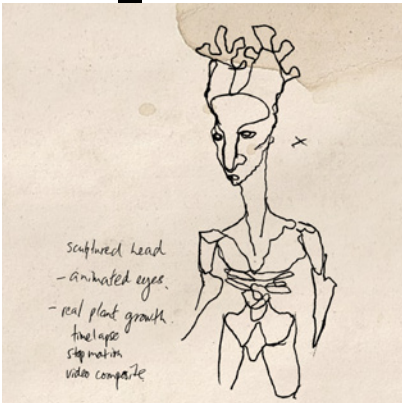 sculptured head
- animated eyes.
- real plant growth.
timelapse
stop motion
video composite
x